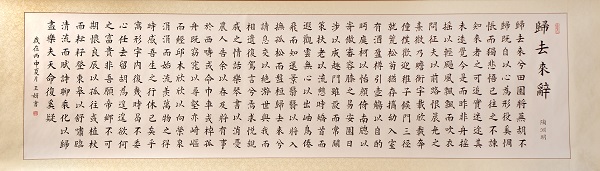 歸去來辭
陶淵明
歸去來兮田園將蕪胡不
歸既自以心為形役奚惆
悵而獨悲悟已往之不諫
知來者之可追實迷途其
未遠覺今是而昨非舟搖
搖以輕颺風飄飄而吹衣
問征夫以前路恨晨光之
熹微乃瞻衡宇載欣載奔
僮僕歡迎稚子候門三徑
就荒松菊猶存攜幼入室
有酒盈樽引壺觴以自酌
眄庭柯以怡顏倚南窗以
寄傲審容膝之易安園日
涉以成趣門雖設而常關
策扶老以流憩時矯首而
遐觀雲無心以出岫鳥倦
飛而知還景翳翳以將入
撫孤松而盤桓歸去來兮
請息交以絕游世與我而
相違復駕言兮焉求悅親
戚之情話樂琴書以消憂
農人告余以春及將有事
於西疇或命巾車或棹孤
舟既窈窕以尋壑亦崎嶇
而經丘木欣欣以向榮泉
涓涓而始流羨萬物之得
時感吾生之行休已矣乎
寓形宇內復幾時曷不委
心任去留胡為遑遑欲何
之富貴非吾願帝鄉不可
期懷良辰以孤往或植杖
而耘耔登東皋以舒嘯臨
清流而賦詩聊乘化以歸
盡樂夫天命復奚疑
歲在丙申夏月王書